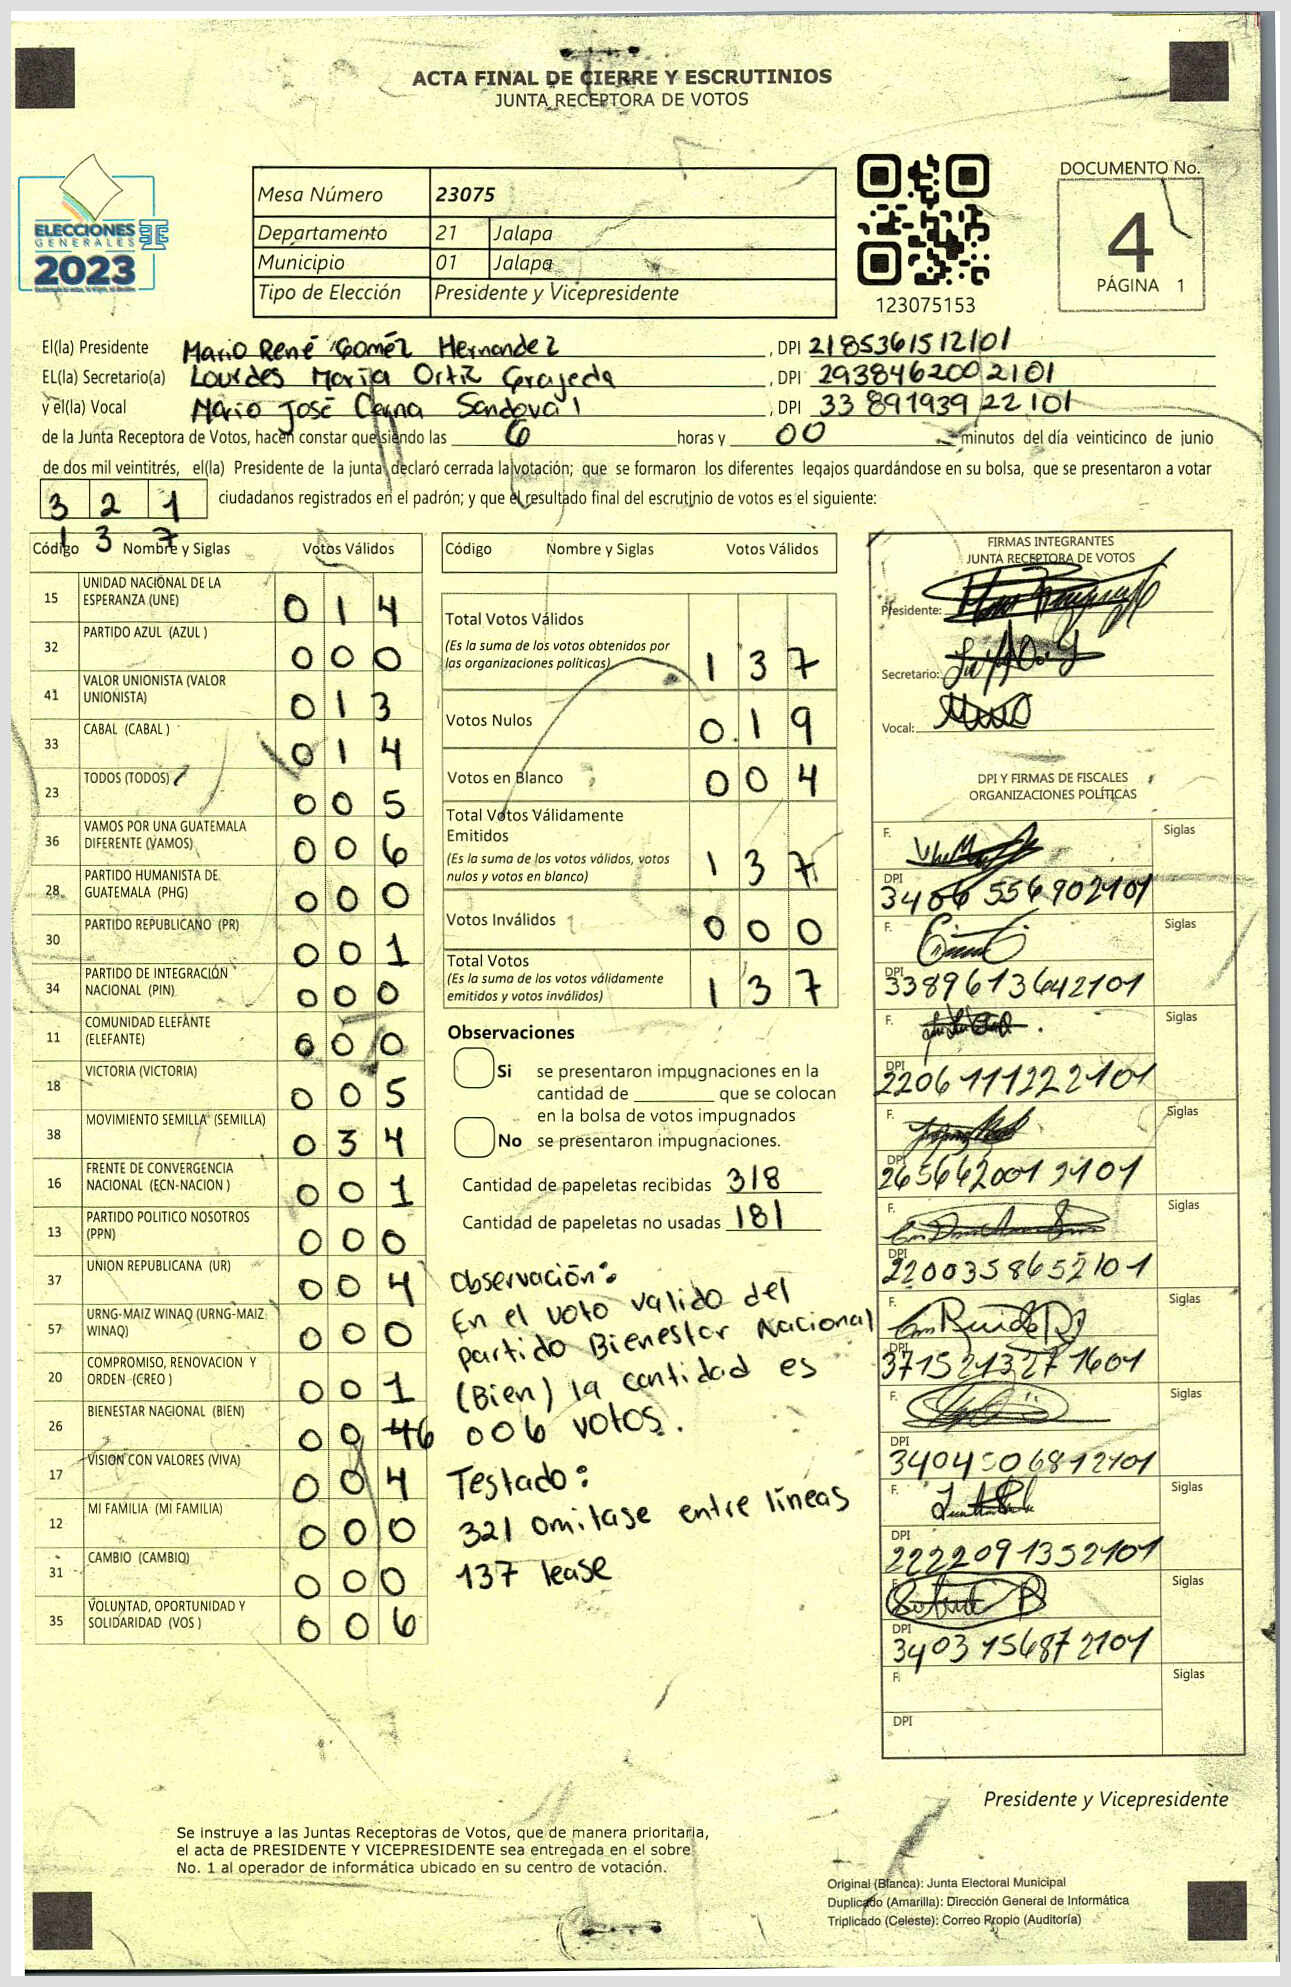 ACTA FINAL DE CIERRE Y ESCRUTINIOS
JUNTA RECEPTORA DE VOTOS
ELECCIONES
GENERALES
2023
Mesa Número 23075
Departamento 21 Jalapa
Municipio 01 Jalapa
Tipo de Elección Presidente y Vicepresidente
123075153
DOCUMENTO No.
4
PÁGINA 1
El(la) Presidente Mario René Goméz Hernandez, DPI 2185361512101
EL(la) Secretario(a) Lourdes María Ortiz Grajeda, DPI 2938462002101
y el(la) Vocal Mario José Cerna Sandoval, DPI 3389193922101
de la Junta Receptora de Votos, hacen constar que siendo las 6 horas y 00 minutos del día veinticinco de junio
de dos mil veintitrés, el(la) Presidente de la junta declaró cerrada la votación; que se formaron los diferentes legajos guardándose en su bolsa, que se presentaron a votar
3 2 1 ciudadanos registrados en el padrón; y que el resultado final del escrutinio de votos es el siguiente:
1 3 7
Código Nombre y Siglas Votos Válidos
15 UNIDAD NACIONAL DE LA ESPERANZA (UNE) 0 1 4
32 PARTIDO AZUL (AZUL ) 0 0 0
41 VALOR UNIONISTA (VALOR UNIONISTA) 0 1 3
33 CABAL (CABAL ) 0 1 4
23 TODOS (TODOS) 0 0 5
36 VAMOS POR UNA GUATEMALA DIFERENTE (VAMOS) 0 0 6
28 PARTIDO HUMANISTA DE GUATEMALA (PHG) 0 0 0
30 PARTIDO REPUBLICANO (PR) 0 0 1
34 PARTIDO DE INTEGRACIÓN NACIONAL (PIN) 0 0 0
11 COMUNIDAD ELEFANTE (ELEFANTE) 0 0 0
18 VICTORIA (VICTORIA) 0 0 5
38 MOVIMIENTO SEMILLA (SEMILLA) 0 3 4
16 FRENTE DE CONVERGENCIA NACIONAL (ECN-NACION ) 0 0 1
13 PARTIDO POLITICO NOSOTROS (PPN) 0 0 0
37 UNION REPUBLICANA (UR) 0 0 4
57 URNG-MAIZ WINAQ (URNG-MAIZ WINAQ) 0 0 0
20 COMPROMISO, RENOVACION Y ORDEN (CREO ) 0 0 1
26 BIENESTAR NACIONAL (BIEN) 0 0 46
17 VISION CON VALORES (VIVA) 0 0 4
12 MI FAMILIA (MI FAMILIA) 0 0 0
31 CAMBIO (CAMBIO) 0 0 0
35 VOLUNTAD, OPORTUNIDAD Y SOLIDARIDAD (VOS ) 0 0 6
Código Nombre y Siglas Votos Válidos
Total Votos Válidos
(Es la suma de los votos obtenidos por
las organizaciones políticas) 1 3 7
Votos Nulos 0 1 9
Votos en Blanco 0 0 4
Total Votos Válidamente
Emitidos
(Es la suma de los votos válidos, votos
nulos y votos en blanco) 1 3 7
Votos Inválidos 0 0 0
Total Votos
(Es la suma de los votos válidamente
emitidos y votos inválidos) 1 3 7
Observaciones
Si se presentaron impugnaciones en la
cantidad de ________ que se colocan
en la bolsa de votos impugnados
No se presentaron impugnaciones.
Cantidad de papeletas recibidas 318
Cantidad de papeletas no usadas 181
Observación:
En el voto valido del
partido Bienestar Nacional
(Bien) la cantidad es
006 votos.
Testado:
321 omitase entre líneas
137 lease
FIRMAS INTEGRANTES
JUNTA RECEPTORA DE VOTOS
Presidente:
Secretario:
Vocal:
DPI Y FIRMAS DE FISCALES
ORGANIZACIONES POLÍTICAS
F. Siglas
DPI 3406556902101
F. Siglas
DPI 3389613642101
F. Siglas
DPI 2206111222101
F. Siglas
DPI 2656620012101
F. Siglas
DPI 2200358652101
F. Siglas
DPI 3715213271601
F. Siglas
DPI 3404506812101
F. Siglas
DPI 2222091352101
F. Siglas
DPI 3403156872101
F. Siglas
DPI
Presidente y Vicepresidente
Se instruye a las Juntas Receptoras de Votos, que de manera prioritaria,
el acta de PRESIDENTE Y VICEPRESIDENTE sea entregada en el sobre
No. 1 al operador de informática ubicado en su centro de votación.
Original (Blanca): Junta Electoral Municipal
Duplicado (Amarilla): Dirección General de Informática
Triplicado (Celeste): Correo Propio (Auditoría)